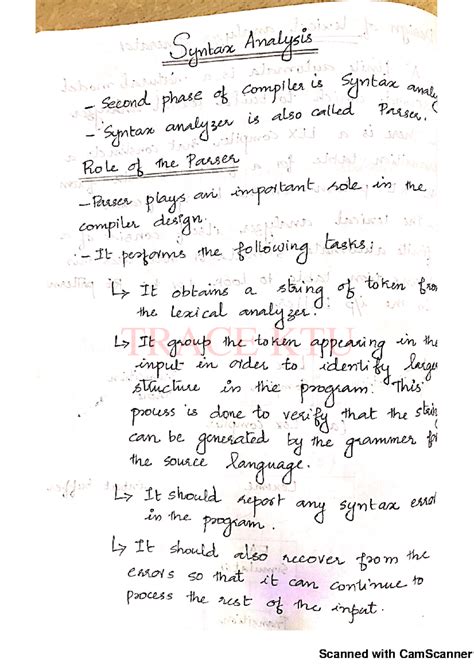 Syntax Analysis
- Second phase of compiler is Syntax analy
- Syntax analyzer is also called Parser.
Role of the Parser
- Parser plays an important role in the
compiler design.
- It performs the following tasks:
↳ It obtains a string of token from
the lexical analyzer.
↳ It group the token appearing in the
TRACE KTU
input in order to identify large
structure in the program. This
process is done to verify that the string
can be generated by the grammer for
the source language.
↳ It should report any syntax error
in the program.
↳ It should also recover from the
errors so that it can continue to
process the rest of the input.
Scanned with CamScanner